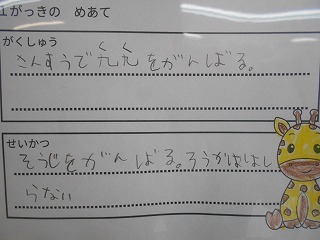 1がっきの めあて
がくしゅう
く く
さんすうで九九をがんばる。
せいかつ
そうじをがんばる。ろうかははし
らない